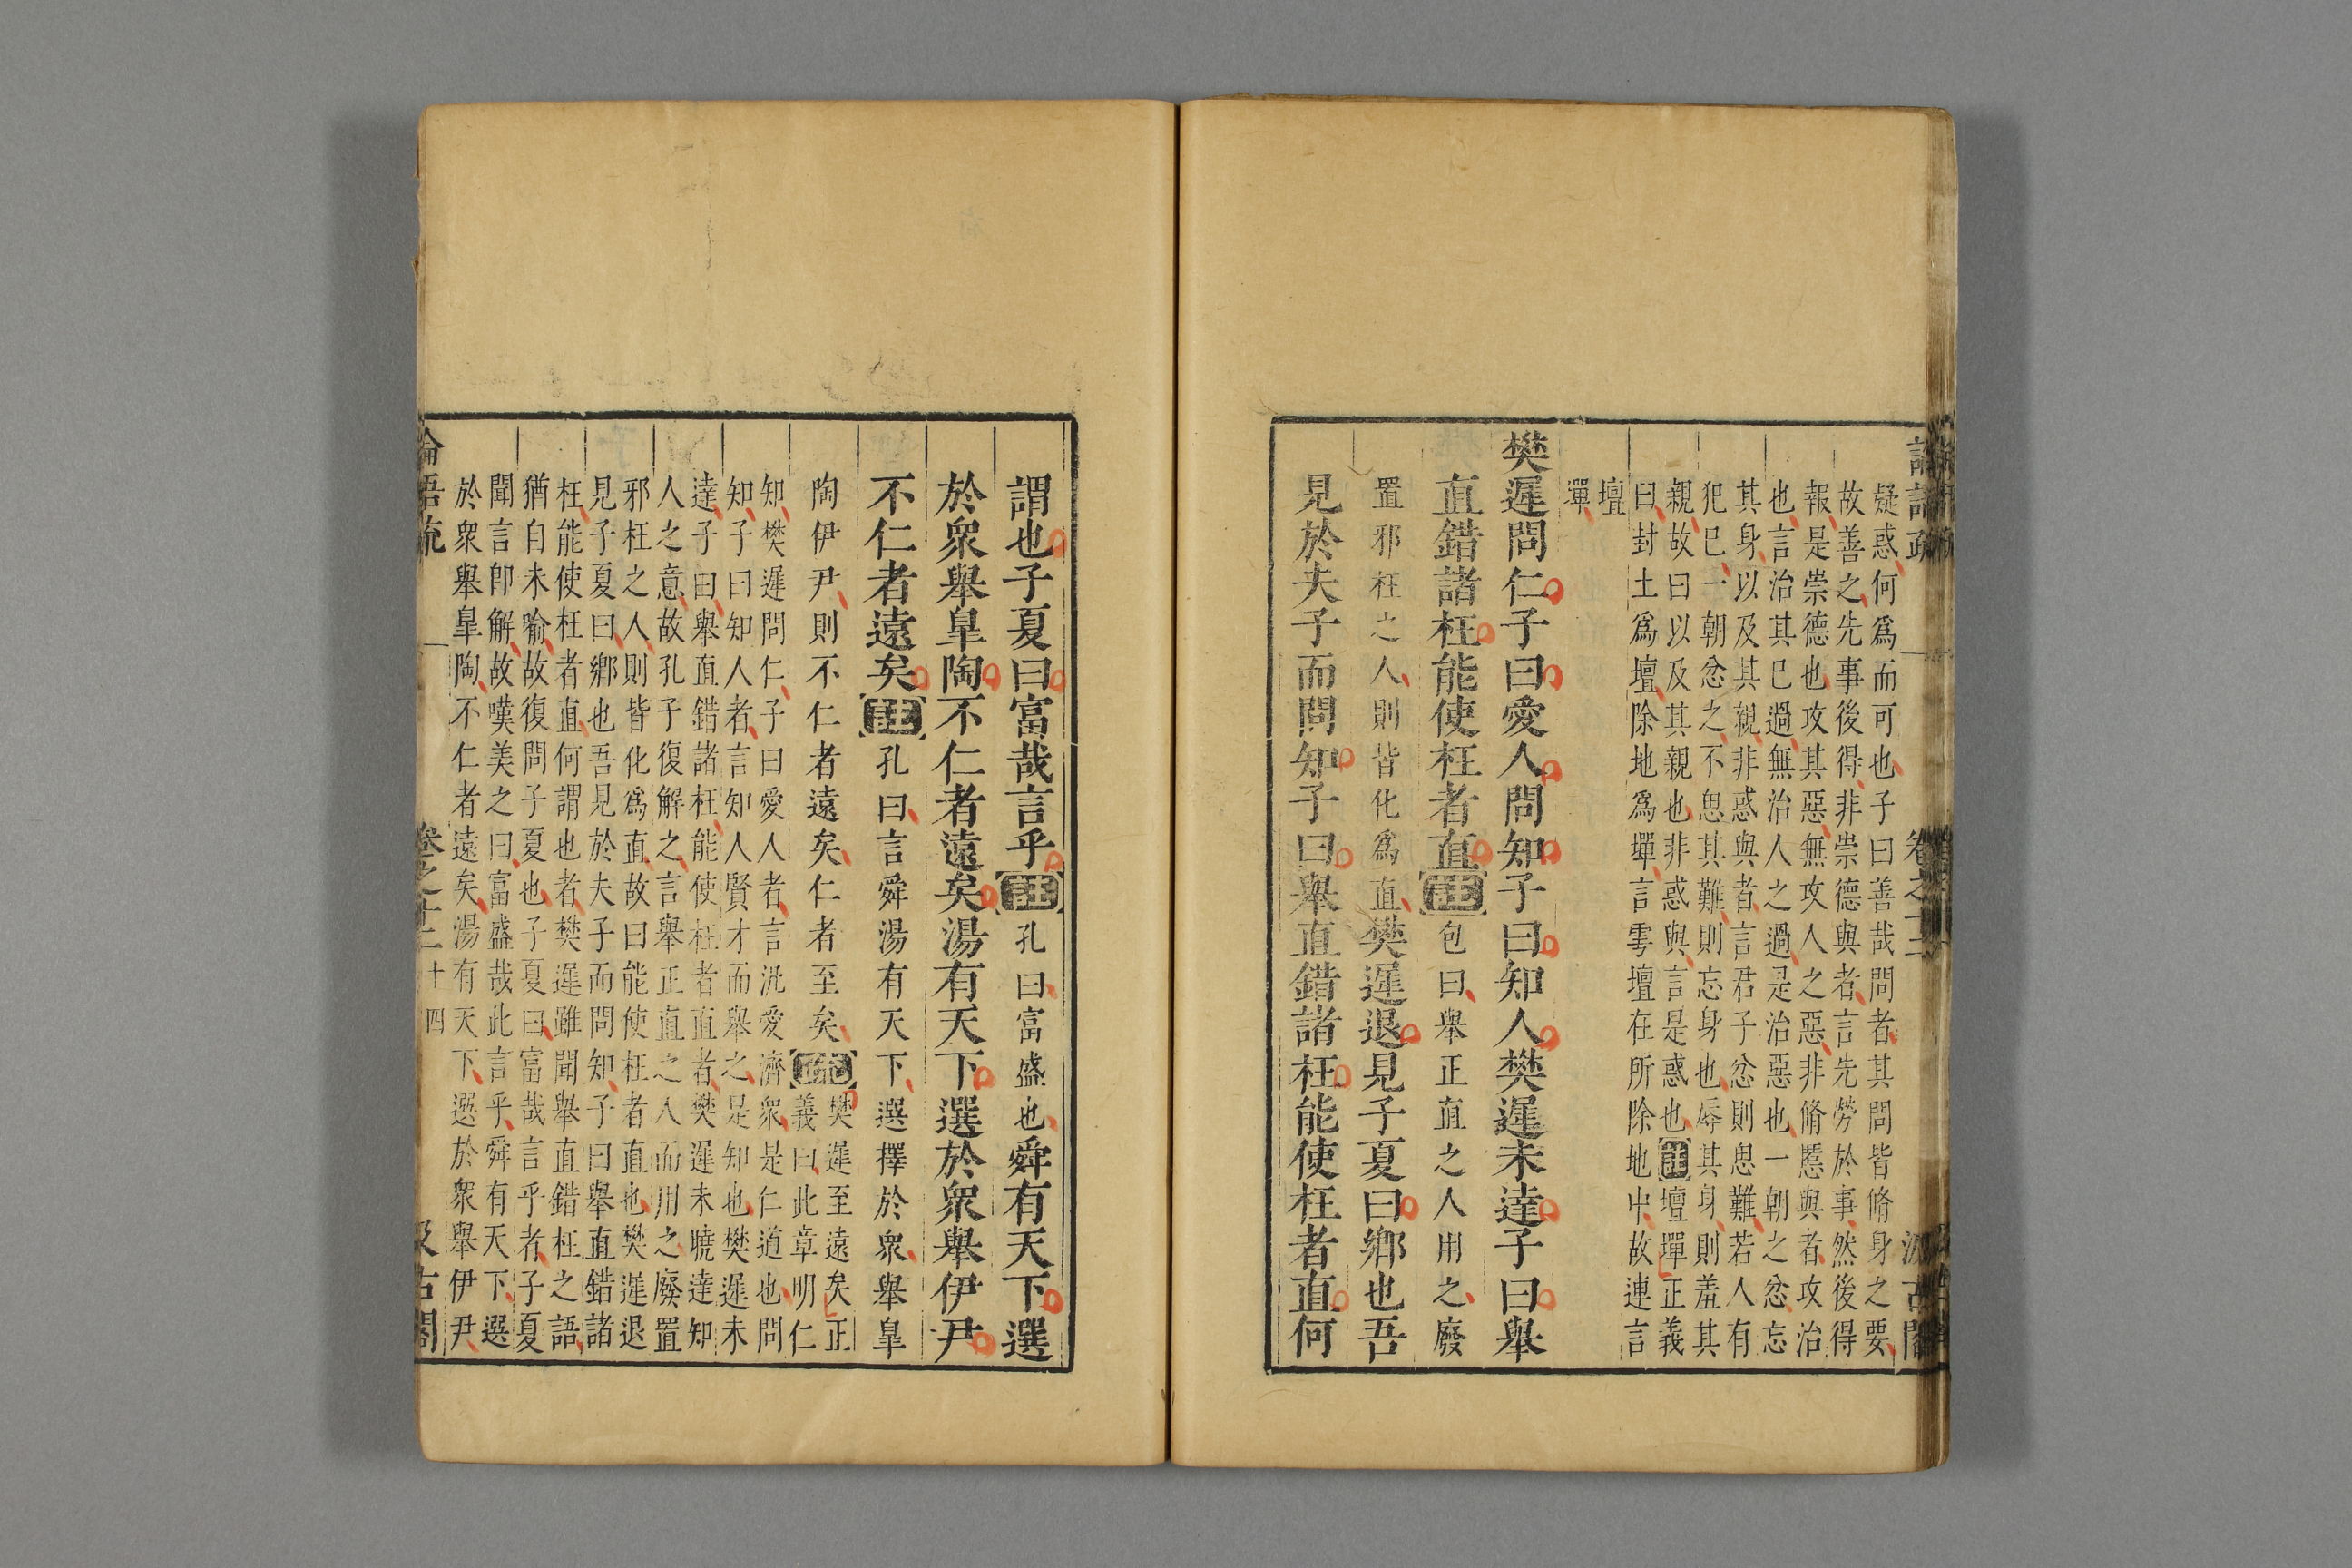 疑惑何爲而可也子曰善哉問者其問皆脩身之要
故善之先事後得非崇德與者言先勞於事然後得
報是崇德也攻其惡無攻人之惡非脩慝與者攻治
也言治其已過無治人之過是治惡也一朝之忿忘
其身以及其親非惑與者言君子忿則思難若人有
犯已一朝忿之不思其難則忘身也辱其身則羞其
親故曰以及其親也非惑與言是惑也註壇墠正義
曰封土爲壇除地爲墠言雩壇在所除地中故連言
壇
墠
樊遲問仁子曰愛人問知子曰知人樊遲未達子曰舉
直錯諸枉能使枉者直註包曰舉正直之人用之廢
置邪枉之人則皆化爲直樊遲退見子夏曰鄉也吾
見於夫子而問知子曰舉直錯諸枉能使枉者直何
謂也子夏曰富哉言乎註孔曰富盛也舜有天下選
於衆舉皐陶不仁者遠矣湯有天下選於衆舉伊尹
不仁者遠矣註孔曰言舜湯有天下選擇於衆舉皐
陶伊尹則不仁者遠矣仁者至矣疏樊遲至遠矣正
義曰此章明仁
知樊遲問仁子曰愛人者言汎愛濟衆是仁道也問
知子曰知人者言知人賢才而舉之是知也樊遲未
達子曰舉直錯諸枉能使枉者直者樊遲未曉達知
人之意故孔子復解之言舉正直之人而用之廢置
邪枉之人則皆化爲直故曰能使枉者直也樊遲退
見子夏曰鄉也吾見於夫子而問知子曰舉直錯諸
枉能使枉者直何謂也者樊遲雖聞舉直錯枉之語
猶自未喻故復問子夏也子夏曰富哉言乎者子夏
聞言即解故嘆美之曰富盛哉此言乎舜有天下選
於衆舉皐陶不仁者遠矣湯有天下選於衆舉伊尹
論語疏 卷之十二 十四 汲古閣